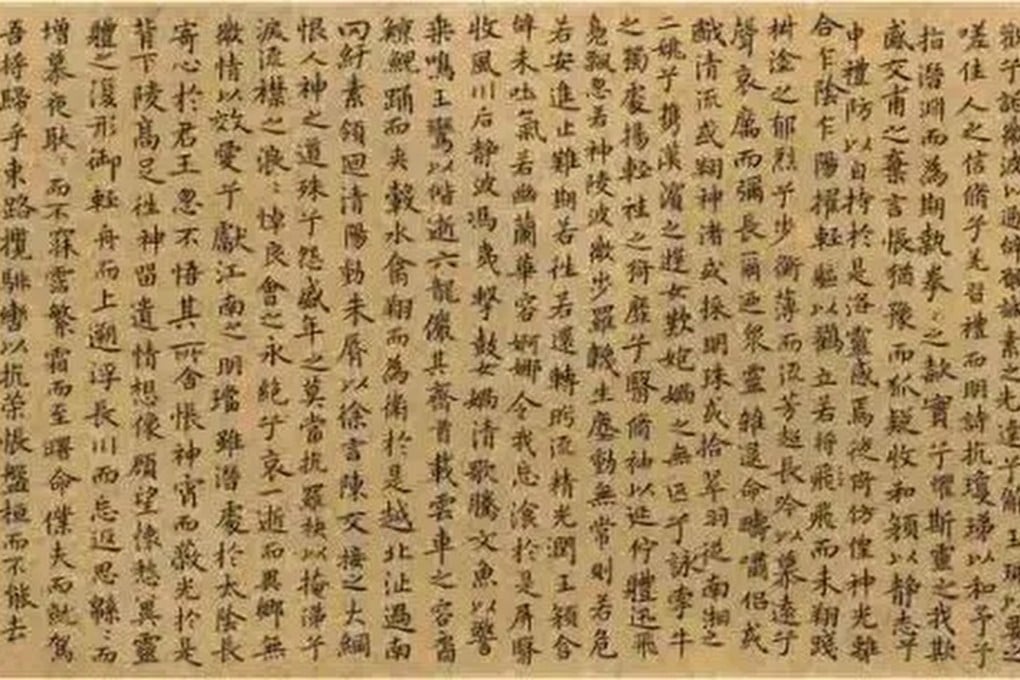 訴微波以通辭願誠素之先達兮解玉珮以要之
嗟佳人之信脩兮羌習禮而明詩抗瓊珶以和予兮
指潛淵而為期執拳〻之款實兮懼斯靈之我欺
感交甫之棄言悵猶豫而狐疑收和顏以靜志兮
申禮防以自持於是洛靈感焉徙倚彷徨神光離
合乍陰乍陽擢輕軀以鶴立若將飛飛而未翔踐
椒塗之郁烈兮步蘅薄而流芳超長吟以慕遠兮
聲哀厲而彌長爾迺衆靈雜遝命疇嘯侶或
戲清流或翔神渚或採明珠或拾翠羽從南湘之
二姚兮攜漢濱之遊女歎匏媧之無匹兮詠牽牛
之獨處揚輕袿之猗靡兮翳脩袖以延佇體迅飛
鳧飄忽若神陵波微步羅韈生塵動無常則若危
若安進止難期若往若還轉眄流精光潤玉顏含
辭未吐氣若幽蘭華容婀娜令我忘飡於是屏翳
收風川后靜波馮夷擊鼓女媧清歌騰文魚以警
乘鳴玉鸞以偕逝六龍儼其齊首載雲車之容裔
鯨鯢踊而夾轂水禽翔而為衛於是越北沚過南
岡紆素領迴清陽動朱脣以徐言陳交接之大綱
恨人神之道殊兮怨盛年之莫當抗羅袂以掩涕兮
淚流襟之浪〻悼良會之永絕兮哀一逝而異鄉無
微情以效愛兮獻江南之明璫雖潛處於太陰長
寄心於君王忽不悟其所舍悵神宵而蔽光於是
背下陵高足往神留遺情想像顧望懷愁冀靈
體之復形御輕舟而上遡浮長川而忘返思緜〻而
增慕夜耿〻而不寐霑繁霜而至曙命僕夫而就駕
吾將歸乎東路攬騑轡以抗策悵盤桓而不能去